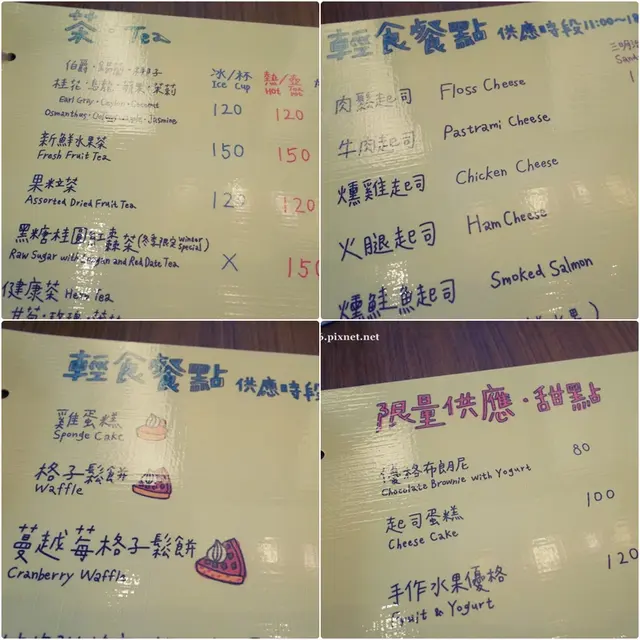 茶・Tea
冰/杯
Ice Cup
熱/壺
Hot
桂花・烏龍・蘋果・茉莉
Earl Gray・
120
120
Osmanthus・Jasmine
新鮮水果茶
Fresh Fruit Tea
150
150
果粒茶
Assorted Dried Fruit Tea
120
120
黑糖桂圓紅棗茶(冬季限定 Winter Special)
Raw Sugar with Longan and Red Date Tea
X
150
健康茶 Herb Tea
輕食餐點 供應時段11:00~
肉鬆起司 Floss Cheese
牛肉起司 Pastrami Cheese
燻雞起司 Chicken Cheese
火腿起司 Ham Cheese
燻鮭魚起司 Smoked Salmon
輕食餐點 供應時段
雞蛋糕
Sponge Cake
格子鬆餅
Waffle
蔓越莓格子鬆餅
Cranberry Waffle
.pixnet.net
限量供應・甜點
優格布朗尼 80
Chocolate Brownie with Yogurt
起司蛋糕 100
Cheese Cake
手作水果優格 120
Fruit & Yogurt